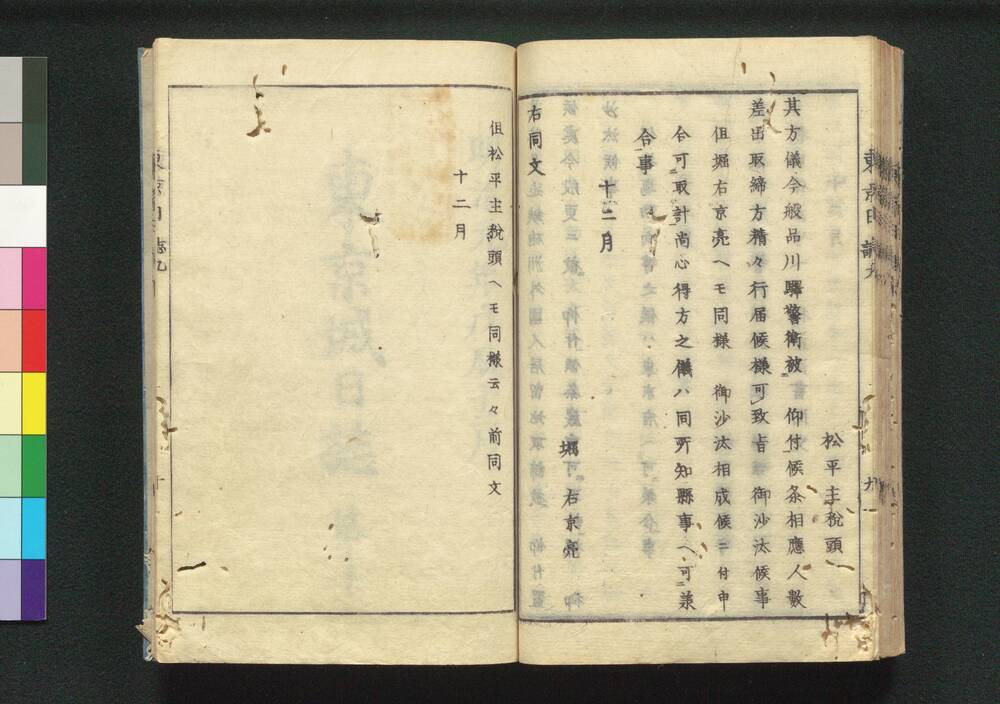 松平主税頭
其方儀今般品川驛警衛被 仰付候条相應人數
差出取締方精々行届候様可致旨 御沙汰候事
但堀右京亮ヘモ同様 御沙汰相成候ニ付申
合可取計尚心得方之儀ハ同所知縣事ヘ可承
合事
十二月
堀右京亮
右同文
但松平主税頭ヘモ同様云々前同文
十二月